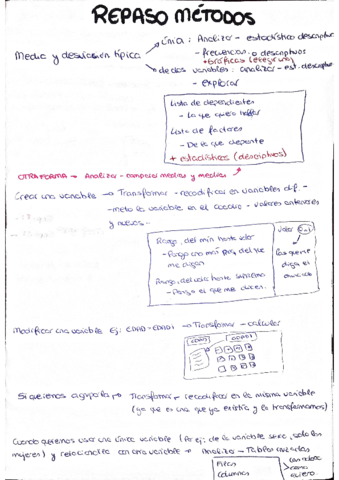 REPASO MÉTODOS
Única: Analizar - estadístico descriptivo
Media y desviación típica
- frecuencias o descriptivos
+ gráficos (
de dos variables: Analizar - est. descriptivo
- explorar
Lista de dependientes
- Lo que quiero
Lista de factores
- De lo que depende
+ estadísticos (descriptivos)
OTRA FORMA → Analizar - comparar medias y medias
Crear una variable → Transformar - recodificar en variables dif. -
- meto la variable en el cuadro - valores anteriores
y nuevos -
Rango, del min hasta valor
- Pongo
me digan
Valor
Los que me
diga el
enunciado
Rango, del valor hasta supremo
- Pongo el que me dicen
Modificar una variable Ej: EDAD-EDAD1 → Transformar - calcular
EDAD1
Si queremos agruparla → Transformar - recodificar en la misma variable
(ya que es una que ya existía y la transformamos)
Cuando queremos usar una única variable (Por ej: de la variable sexo, solo las
mujeres) y relacionarla con otra variable → Analizar - Tablas cruzadas
Filas
columnas
como
quiero